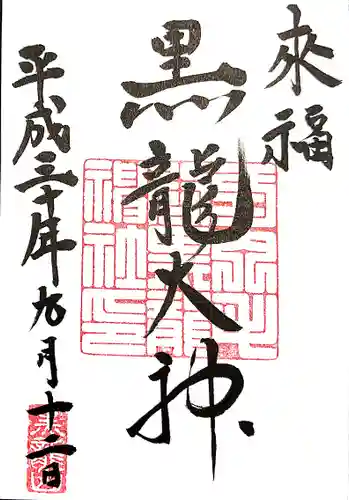 來福
黒龍大神
平成三十年九月十二日